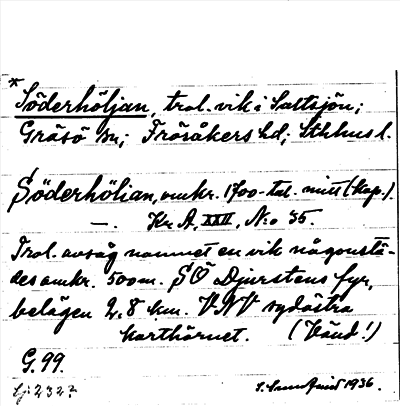 *Söderhöljan, trol. vik i Saltsjön;
Gräsö sn; Frösåkers hd; Sthlms l.
Söderhölian, omkr. 1700-tal. mitt (kop.).
—. Kr A, XXII, No 35.
Trol. avsåg namnet en vik någonstä-
des omkr. 500 m. SÖ Djurstens fyr,
belägen 2,8 km. VNV sydöstra
karthörnet. (Vänd!)
G. 99.
1936.